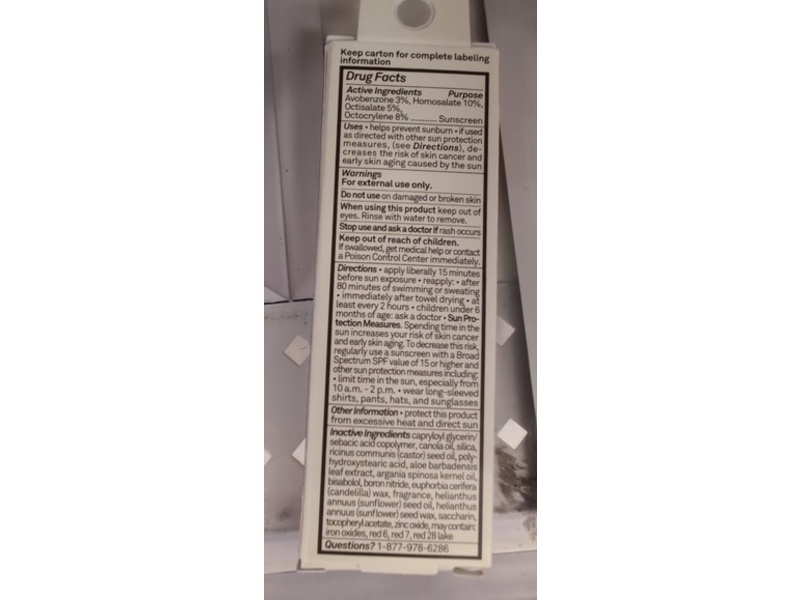 Keep carton for complete labeling
information
Drug Facts
Active Ingredients Purpose
Avobenzone 3%, Homosalate 10%,
Octisalate 5%,
Octocrylene 8% .......... Sunscreen
Uses • helps prevent sunburn • if used
as directed with other sun protection
measures, (see Directions), de-
creases the risk of skin cancer and
early skin aging caused by the sun
Warnings
For external use only.
Do not use on damaged or broken skin
When using this product keep out of
eyes. Rinse with water to remove.
Stop use and ask a doctor if rash occurs
Keep out of reach of children.
If swallowed, get medical help or contact
a Poison Control Center immediately.
Directions • apply liberally 15 minutes
before sun exposure • reapply: • after
80 minutes of swimming or sweating
• immediately after towel drying • at
least every 2 hours • children under 6
months of age: ask a doctor • Sun Pro-
tection Measures. Spending time in the
sun increases your risk of skin cancer
and early skin aging. To decrease this risk,
regularly use a sunscreen with a Broad
Spectrum SPF value of 15 or higher and
other sun protection measures including:
• limit time in the sun, especially from
10 a.m. - 2 p.m. • wear long-sleeved
shirts, pants, hats, and sunglasses
Other Information • protect this product
from excessive heat and direct sun
Inactive Ingredients capryloyl glycerin/
sebacic acid copolymer, canola oil, silica,
ricinus communis (castor) seed oil, poly-
hydroxystearic acid, aloe barbadensis
leaf extract, argania spinosa kernel oil,
bisabolol, boron nitride, euphorbia cerifera
(candelilla) wax, fragrance, helianthus
annuus (sunflower) seed oil, helianthus
annuus (sunflower) seed wax, saccharin,
tocopheryl acetate, zinc oxide, may contain:
iron oxides, red 6, red 7, red 28 lake
Questions? 1-877-978-6286